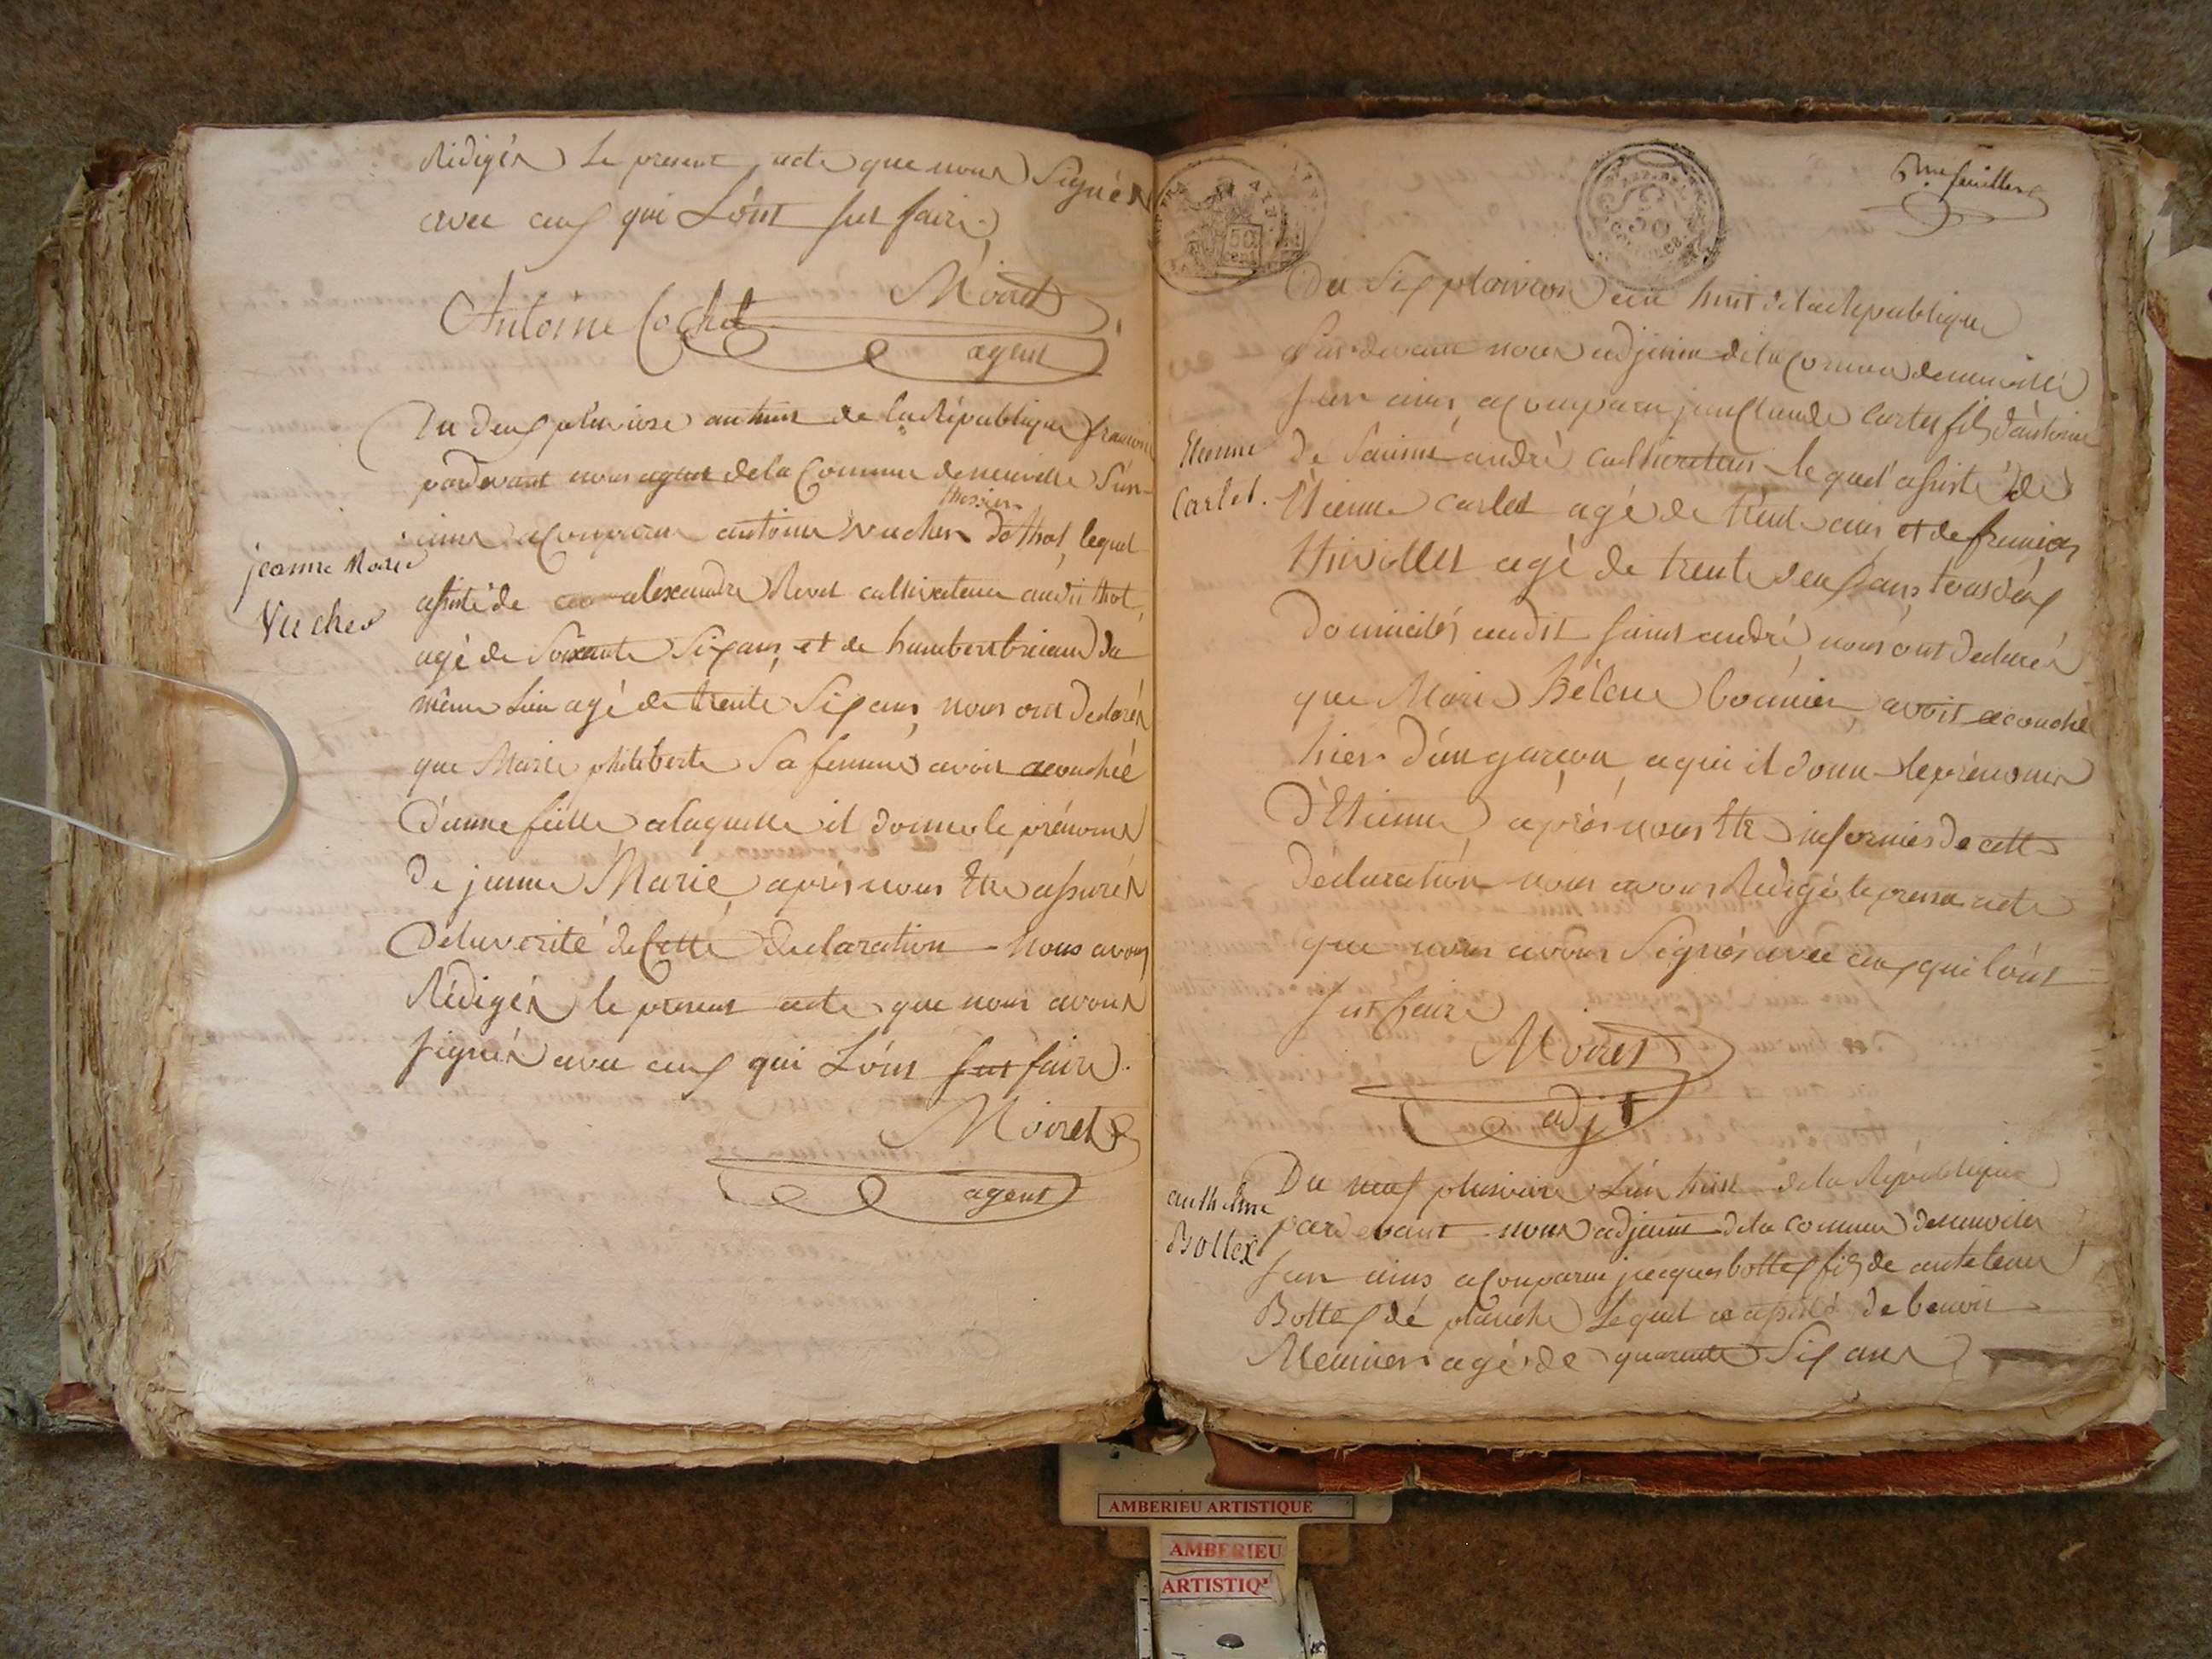 Rédigés Le present acte que nous Signés
avec ceux qui L'ont sut faire
Antoine Cochet Moiret
agent
Du deux pluviose an huit de la République francoise
pardevant nous agent de la Commune de neuville Sur
tissier
ains a Comparu antoine vucher de thol lequel
jeanne Marie
Vucher
assisté de alexandre Revet cultivateur audit thol
agé de Soixante Six ans et de humbert du
même Lieu agé de trente Six ans nous ont declarés
que Marie philiberte Sa femme avoit acouchée
d'unne fille a laquelle il donne le prénoms
De jeanne Marie apres nous Etre assurés
De la verité de Cette declaration - Nous avons
Rédigés le present acte que nous avons
Signés avec ceux qui L'ont sut faire.
Moiret
agent
5me feuillet
50
Du Six pluviose an huit de la République
Pardevant nous adjoint de la Comune de neuville
sur ains a comparu jean Claude Carlet fils d'antoine
Etienne
Carlet.
de Saint andré cultivateur lequel assisté de
Etienne Carlet agé de trente ans et de francois
thivollet agé de trente deux ans tous deux
Domiciliés audit saint andré nous ont declarés
que Marie Hélene bounier avoit acouché
hier d'un garcon a qui il donne le prénoms
D'Etienne après nous Etre informés de cette
declaration nous avons Redigé le present acte
que nous avons Signés avec ceux qui l'ont
sut faire
Moiret
adjt
anthelme
Bottex
Du neuf pluviose L'an huit de la République
pardevant nous adjoint de la Commune de neuville
sur ains a Comparu jacques bottex fils de antelme
Bottex de planche Lequel a assisté de benoit
Meunier agé de quarante Six ans
AMBERIEU ARTISTIQUE
AMBERIEU
ARTISTIQ